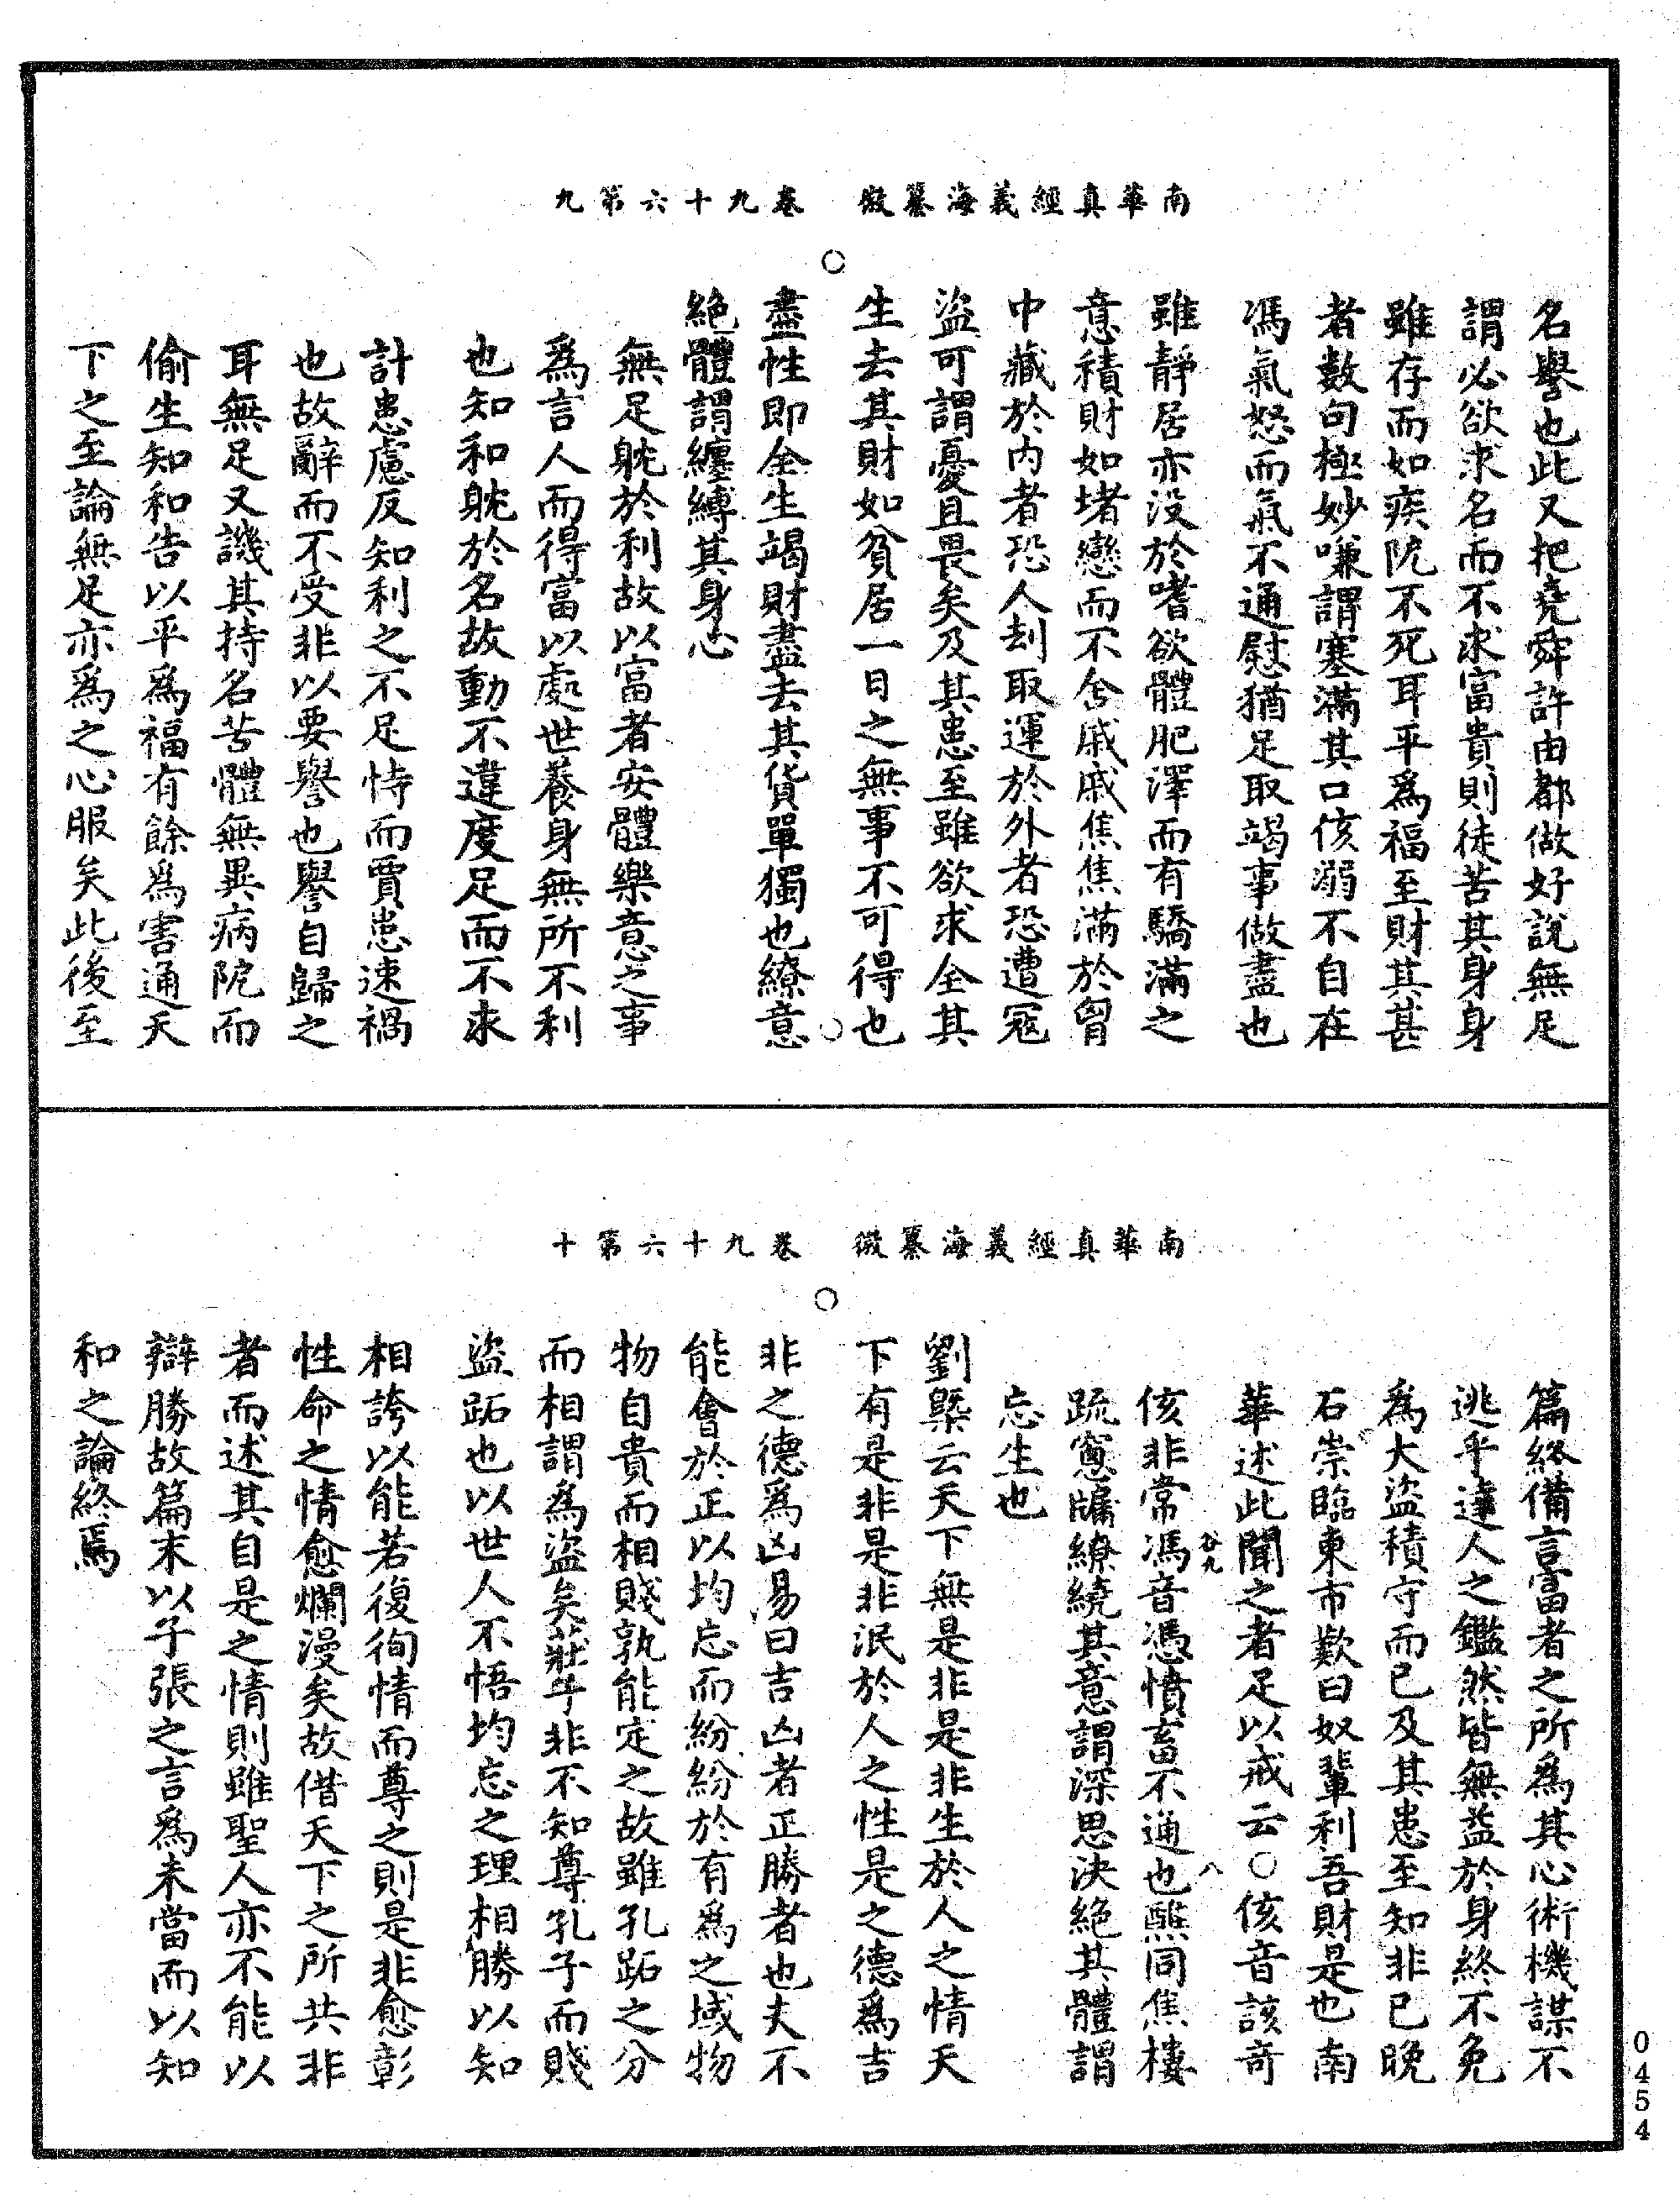 南華真經義海纂微　卷九十六第九
名譽也此又把堯舜許由都做好說無足
謂必欲求名而不求富貴則徒苦其身身
雖存而如疾阨不死耳平為福至財其甚
者數句極妙嗛謂塞滿其口侅溺不自在
馮氣怒而氣不通慰猶足取竭事做盡也
雖靜居亦沒於嗜欲體肥澤而有驕滿之
意積財如堵戀而不舍戚戚焦焦滿於胷
中藏於內者恐人刦取運於外者恐遭寇
盜可謂憂且畏矣及其患至雖欲求全其
生去其財如貧居一日之無事不可得也
盡性即全生竭財盡去其貨單獨也繚意
絕體謂纏縛其身心
無足躭於利故以富者安體樂意之事
為言人而得富以處世養身無所不利
也知和躭於名故動不違度足而不求
計患慮反知利之不足恃而賈患速禍
也故辭而不受非以要譽也譽自歸之
耳無足又譏其持名苦體無異病阨而
偷生知和告以平為福有餘為害通天
下之至論無足亦為之心服矣此後至
南華真經義海纂微　卷九十六第十
篇終備言富者之所為其心術機謀不
逃乎達人之鑑然皆無益於身終不免
為大盜積守而已及其患至知非已晚
石崇臨東市歎曰奴輩利吾財是也南
華述此聞之者足以戒云○侅音該奇
谷九　八
侅非常馮音憑憤畜不通也醮同焦樓
疏窻牖繚繞其意謂深思決絕其體謂
忘生也
劉槩云天下無是非是非生於人之情天
下有是非是非泯於人之性是之德為吉
非之德為凶易曰吉凶者正勝者也夫不
能會於正以均忘而紛紛於有為之域物
物自貴而相賤孰能定之故雖孔跖之分
而相謂為盜矣莊子非不知尊孔子而賤
盜跖也以世人不悟均忘之理相勝以知
相誇以能若復徇情而尊之則是非愈彰
性命之情愈爛漫矣故借天下之所共非
者而述其自是之情則雖聖人亦不能以
辯勝故篇末以子張之言為未當而以知
和之論終焉
0454